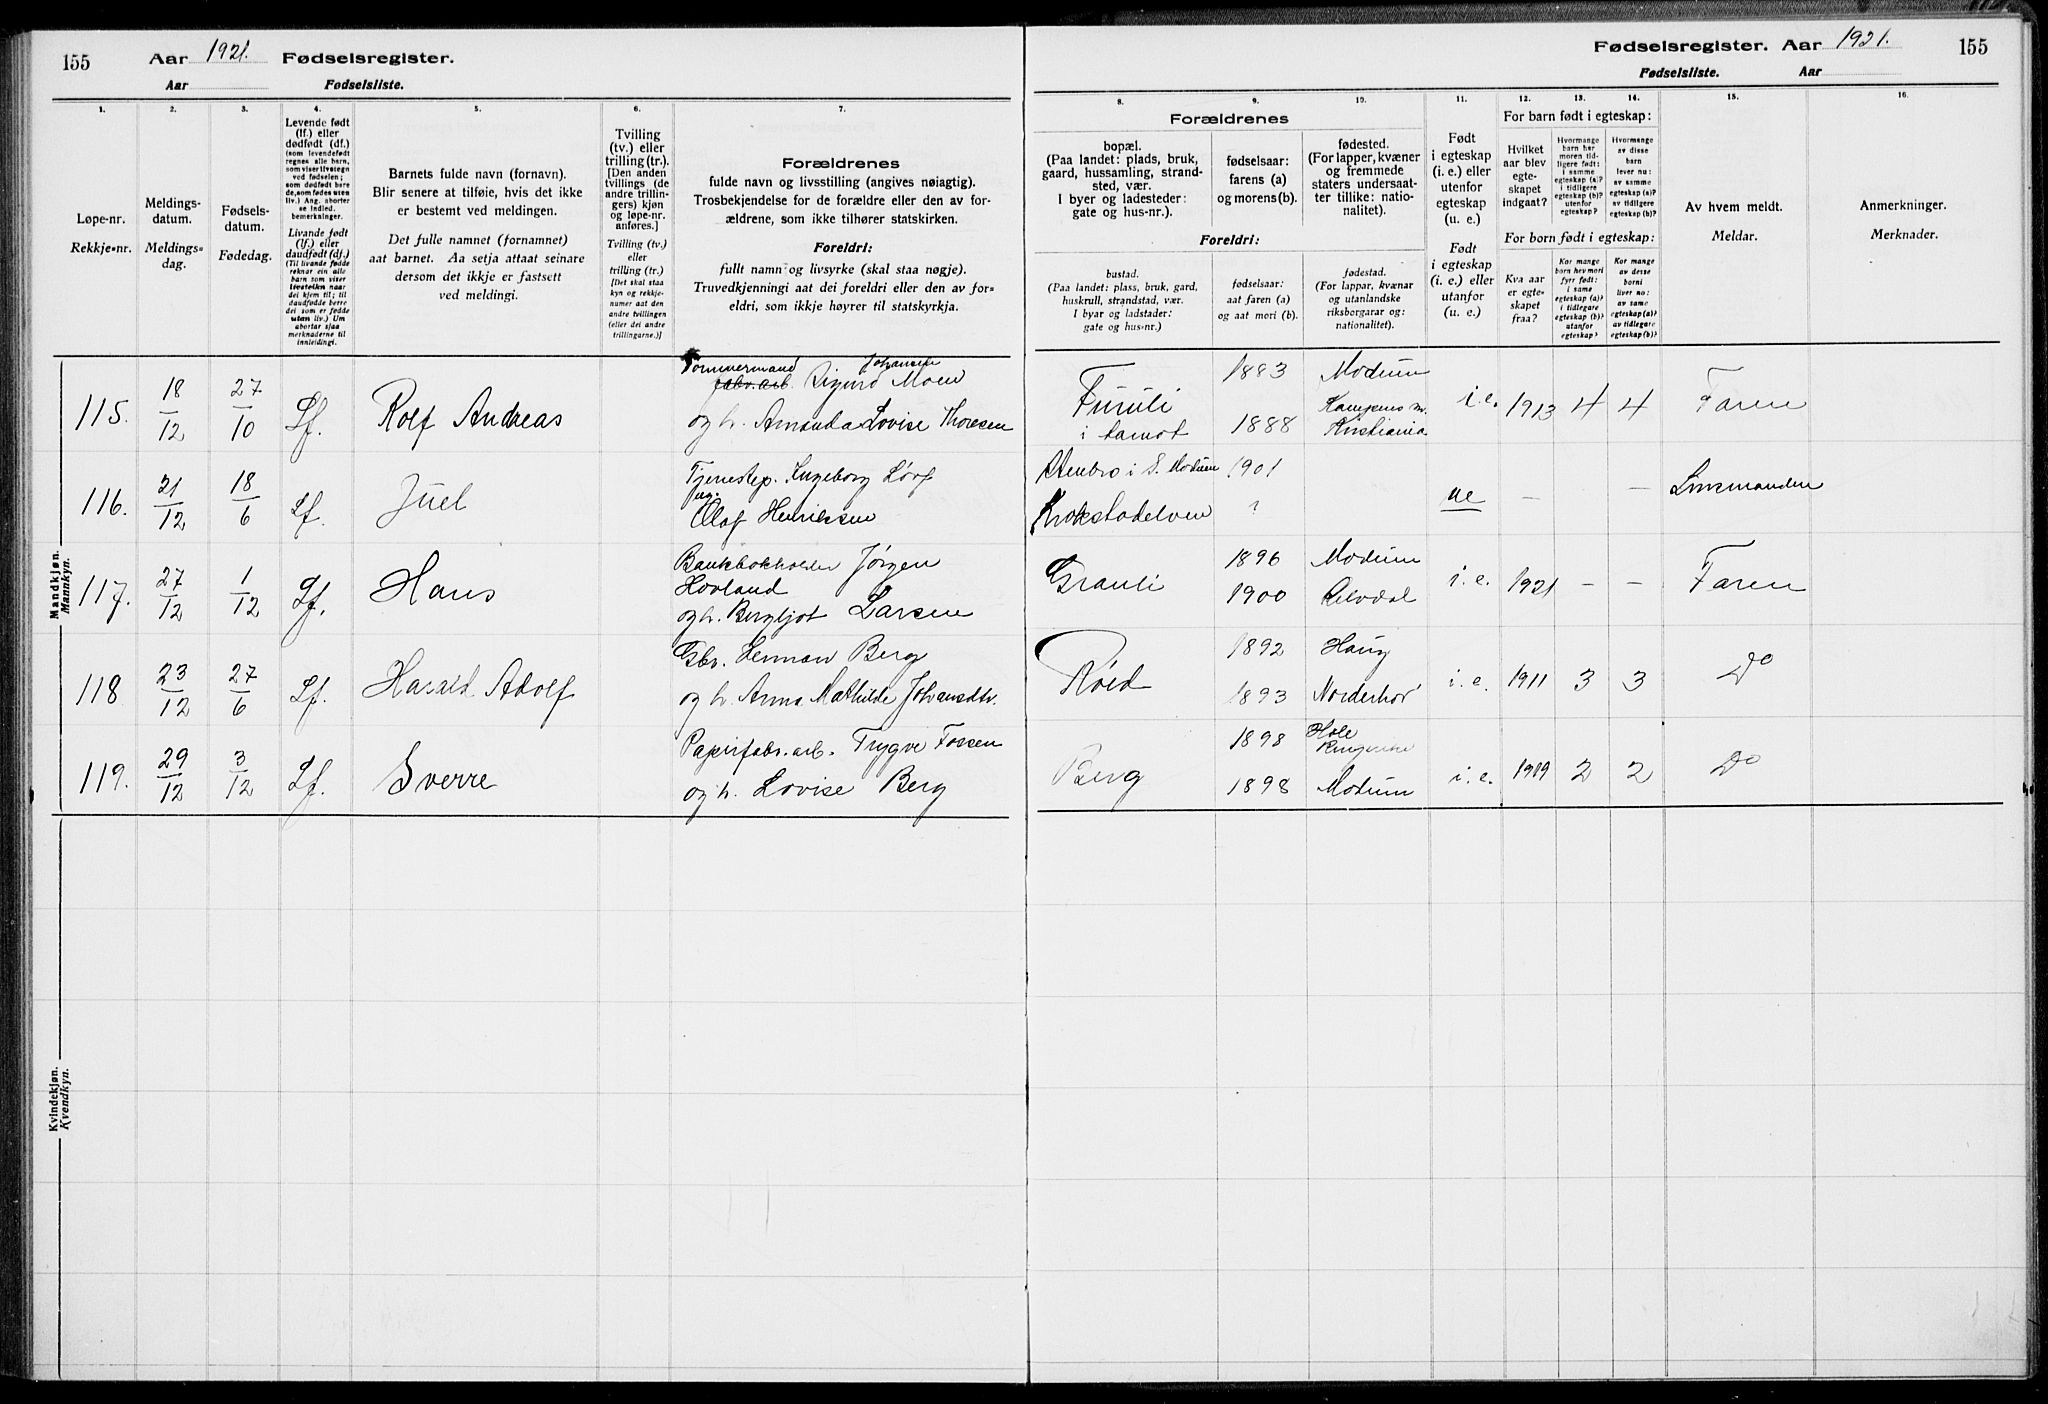 155 Aar 1921. Fødselsregister.
Aar Fødselsliste.
Fødselsregister. Aar 1921. 155
Fødselsliste. Aar
1. 2. 3. 4. 5. 6. 7.
Løpe-nr.
Rekkje-nr.
Meldings-
datum.
Meldings-
dag.
Fødsels-
datum.
Fødedag.
Levende født
(lf.) eller
dødfødt (df.)
(som levendefødt
regnes alle barn,
som viser livstegn
ved fødselen;
som dødfødt bare
de, som fødes uten
liv.) Ang. aborter
se indled.
bemerkninger.
Livande født
(lf.) eller
daudfødt (df.)
(Til livande fødde
reknar ein alle
barn som viser
livsteikn naar
dei kjem til; til
daudfødde berre
dei som er fødde
utan liv.) Um
abortar sjaa
merknaderne til
innleidingi.
Barnets fulde navn (fornavn).
Blir senere at tilføie, hvis det ikke
er bestemt ved meldingen.
Det fulle namnet (fornamnet)
aat barnet. Aa setja attaat seinare
dersom det ikkje er fastsett
ved meldingi.
Tvilling
(tv.) eller
trilling (tr.).
[Den anden
tvillings (de
andre trillin-
gers) kjøn
og løpe-nr.
anføres.]
Tvilling (tv.)
eller
trilling (tr.)
[Det skal staa
kyn og rekkje-
numer aat den
andre tvillingen
(eller dei andre
trillingarne.)]
Forældrenes
fulde navn og livsstilling (angives nøiagtig).
Trosbekjendelse for de forældre eller den av for-
ældrene, som ikke tilhører statskirken.
Foreldri:
fullt namn og livsyrke (skal staa nøgje).
Truvedkjenningi aat dei foreldri eller den av for-
eldri, som ikkje høyrer til statskyrkja.
8. 9. 10. 11. 12. 13. 14. 15. 16.
Forældrenes
bopæl.
(Paa landet: plads, bruk,
gaard, hussamling, strand-
sted, vær.
I byer og ladesteder:
gate og hus-nr.).
fødselsaar:
farens (a)
og morens (b).
fødested.
(For lapper, kvæner
og fremmede
staters undersaat-
ter tillike: natio-
nalitet).
Foreldri:
bustad.
(Paa landet: plass, bruk, gard,
huskrull, strandstad, vær.
I byar og ladstader:
gate og hus-nr.)
fødselsaar:
aat faren (a)
og aat mori (b).
fødestad.
(For lappar, kvænar
og utanlandske
riksborgarar og:
nationalitet).
Født
i egteskap
(i. e.) eller
utenfor
egteskap
(u. e.)
Født
i egteskap
(i. e.) eller
utanfor
(u. e.)
For barn født i egteskap:
Hvilket
aar blev
egte-
skapet
indgaat?
Hvormange
barn har
moren tid-
ligere født:
i samme
egteskap (a)?
i tidligere
egteskap (b)?
utenfor
egteskap?
Hvormange
av disse
barn
lever nu:
av samme
egteskap (a)?
av tidligere
egteskap (b)?
For born født i egteskap:
Kva aar
er egte-
skapet
fraa?
Kor mange
born hev mori
fyr født:
i same
egteskap (a)?
i tidlegare
egteskap (b)?
utanfor
egteskap?
Kor mange
av desse
borni
liver no:
av same
egteskap (a)?
av tidlegare
egteskap (b)?
Av hvem meldt.
Meldar.
Anmerkninger.
Merknader.
Mandkjøn.
Mannkyn.
Tømmermand Johansen
115. 18/12 27/10 Lf. Rolf Andreas fabr.arb. Sigurd Moen
og h. Amanda Lovise Thoresen
Furuli 1883 Modum i.e. 1913 4 4 Faren
i Aamot 1888 Kampens m. Kristiania
116. 21/12 18/6 Lf. Juel Tjenestep. Ingeborg
og
Olaf Henriksen
Stenbro i S. Modum 1901 ue — — Lensmanden
Krokstadelven ?
117. 27/12 1/12 Lf. Hans Bankbokholder Jørgen
Hovland
og h. Bergljot Larsen
Grauli 1896 Modum i.e. 1921 — — Faren
1900
118 23/12 27/6 Lf. Harald Adolf Gbr. Herman Berg
og h. Anna Mathilde Johansdtr.
Røed 1892 Haug i.e. 1911 3 3 Do
1893 Norderhov
119. 29/12 3/12 Lf. Sverre Papirfabr.arb. Trygve Fossen
og h. Lovise Berg
Berg 1898 Hole Ringerike i.e. 1919 2 2 Do
1898 Modum
Kvindekjøn.
Kvendkyn.